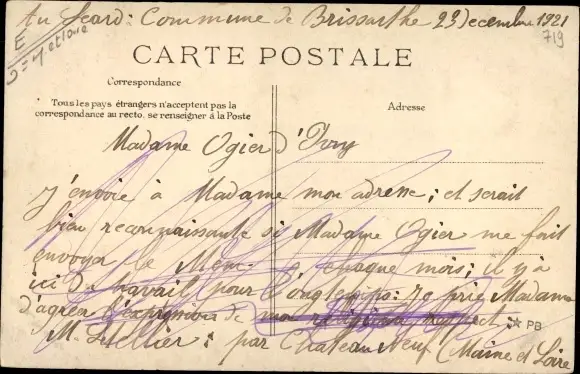 Au Feard: Commune de Brissarthe 23 Decembre 1921
719
CARTE POSTALE
Correspondance
Tous les pays étrangers n'acceptent pas la
correspondance au recto, se renseigner à la Poste
Adresse
Madame Ogier d'Ivry
J'envoie à Madame mon adresse; et serait
bien reconnaissante si Madame Ogier me fait
envoyer le chaque mois; il y à
ici du travail pour longtemps: Je prie Madame
d'agréer l'expression de mon respect:
M. Letellier: par Chateauneuf (Maine et Loire
PB